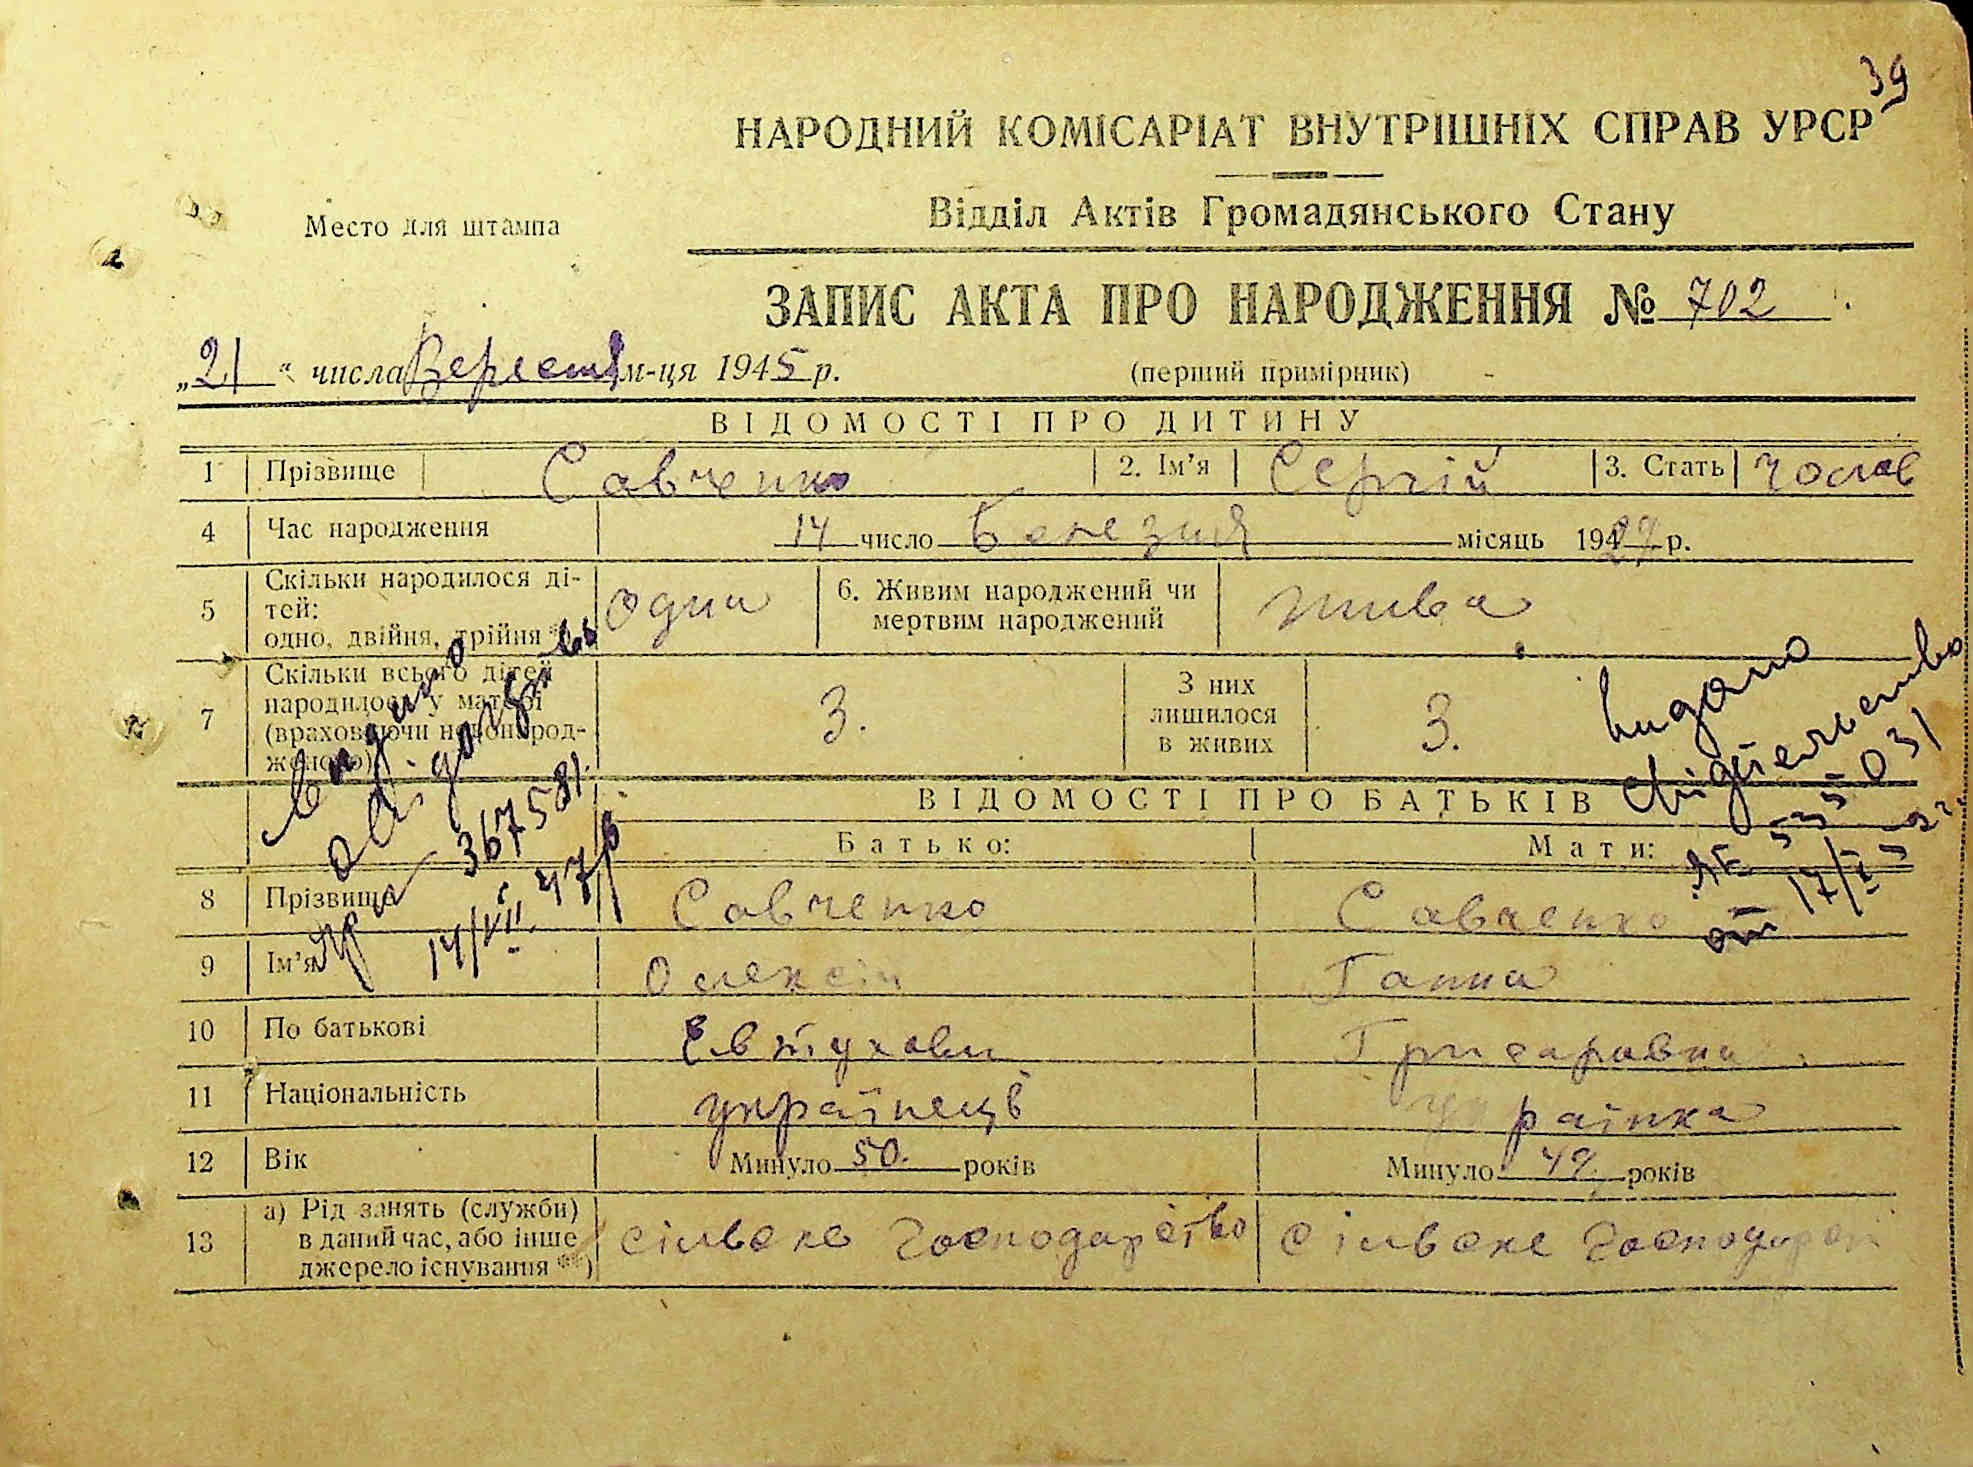 39
НАРОДНИЙ КОМІСАРІАТ ВНУТРІШНІХ СПРАВ УРСР
Место для штампа
Відділ Актів Громадянського Стану
ЗАПИС АКТА ПРО НАРОДЖЕННЯ № 702
„21“ числа м-ця 1945 р. (перший примірник)
ВІДОМОСТІ ПРО ДИТИНУ
1 Прізвище Савченко 2. Ім’я Сергій 3. Стать
4 Час народження 14 число Березня місяць 19 р.
5 Скільки народилося ді-
тей:
одно, двійня, трійня *) одна 6. Живим народжений чи
мертвим народжений жива
7 Скільки всього дітей
народилося у матері
(враховуючи новонарод-
женого) 3. З них
лишилося
в живих 3.
Видано
свідоцтво
367581.
14/VII. 47 р.
ЯЕ 535031
от 17/I 52 г.
ВІДОМОСТІ ПРО БАТЬКІВ
Батько: Мати:
8 Прізвище Савченко Савченко
9 Ім’я Олексій Ганна
10 По батькові Евтухови
11 Національність українець українка
12 Вік Минуло 50. років Минуло 49. років
13 а) Рід занять (служби)
в даний час, або інше
джерело існування **) сільське господарство сільське